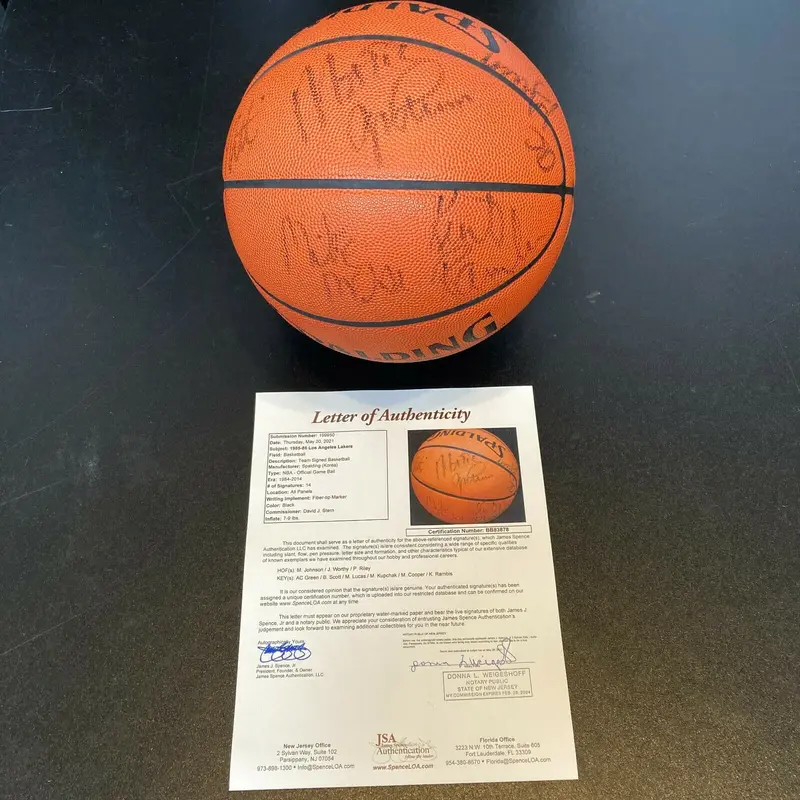 SPALDING
SPALDING
Letter of Authenticity
Submission Number: 199950
Date: Thursday, May 20, 2021
Subject: 1985-86 Los Angeles Lakers
Field: Basketball
Description: Team Signed Basketball
Manufacturer: Spalding (Korea)
Type: NBA - Official Game Ball
Era: 1984-2014
# of Signatures: 14
Location: All Panels
Writing Implement: Fiber-tip Marker
Color: Black
Commissioner: David J. Stern
Inflate: 7-9 lbs.
SPALDING
Certification Number: BB83878
This document shall serve as a letter of authenticity for the above-referenced signature(s), which James Spence
Authentication LLC has examined. The signature(s) is/are consistent considering a wide range of specific qualities
including slant, flow, pen pressure, letter size and formation, and other characteristics typical of our extensive database
of known exemplars we have examined throughout our hobby and professional careers.
HOF(s): M. Johnson / J. Worthy / P. Riley
KEY(s): AC Green / B. Scott / M. Lucas / M. Kupchak / M. Cooper / K. Rambis
It is our considered opinion that the signature(s) is/are genuine. Your authenticated signature(s) has been
assigned a unique certification number, which is uploaded into our restricted database and can be confirmed on our
website www.SpenceLOA.com at any time.
This letter must appear on our proprietary water-marked paper and bear the live signatures of both James J.
Spence, Jr and a notary public. We appreciate your consideration of entrusting James Spence Authentication's
judgement and look forward to examining additional collectibles for you in the near future.
Autographically Yours,
James J. Spence, Jr
President, Founder, & Owner
James Spence Authentication, LLC.
DONNA L. WEIGESHOFF
NOTARY PUBLIC
STATE OF NEW JERSEY
MY COMMISSION EXPIRES FEB. 26, 2024
New Jersey Office
2 Sylvan Way, Suite 102
Parsippany, NJ 07054
973-898-1300 * Info@SpenceLOA.com
JSA
James Spence
Authentication
www.SpenceLOA.com
Florida Office
3223 N.W. 10th Terrace, Suite 608
Fort Lauderdale, FL 33309
954-380-8670 * Florida@SpenceLOA.com